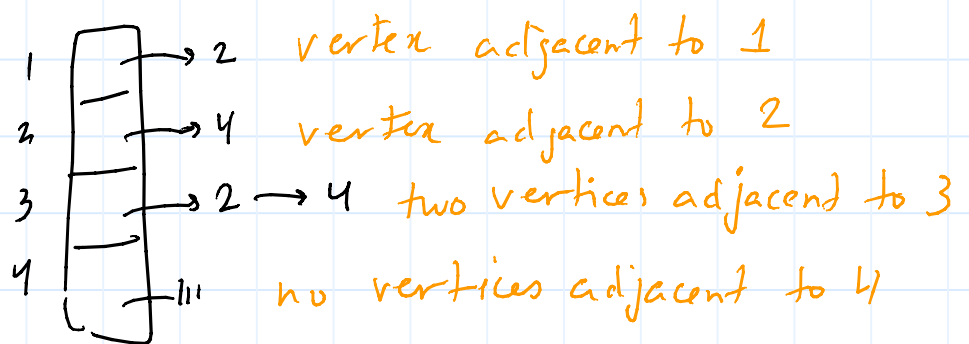 1 → 2 vertex adjacent to 1
2 → 4 vertex adjacent to 2
3 → 2 → 4 two vertices adjacent to 3
4 no vertices adjacent to 4